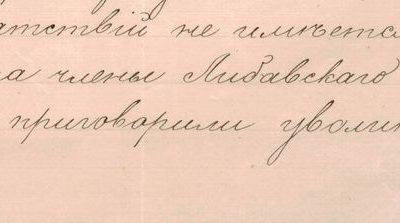 атствій не имѣется
а члены Либавскаго
приговорили уволи